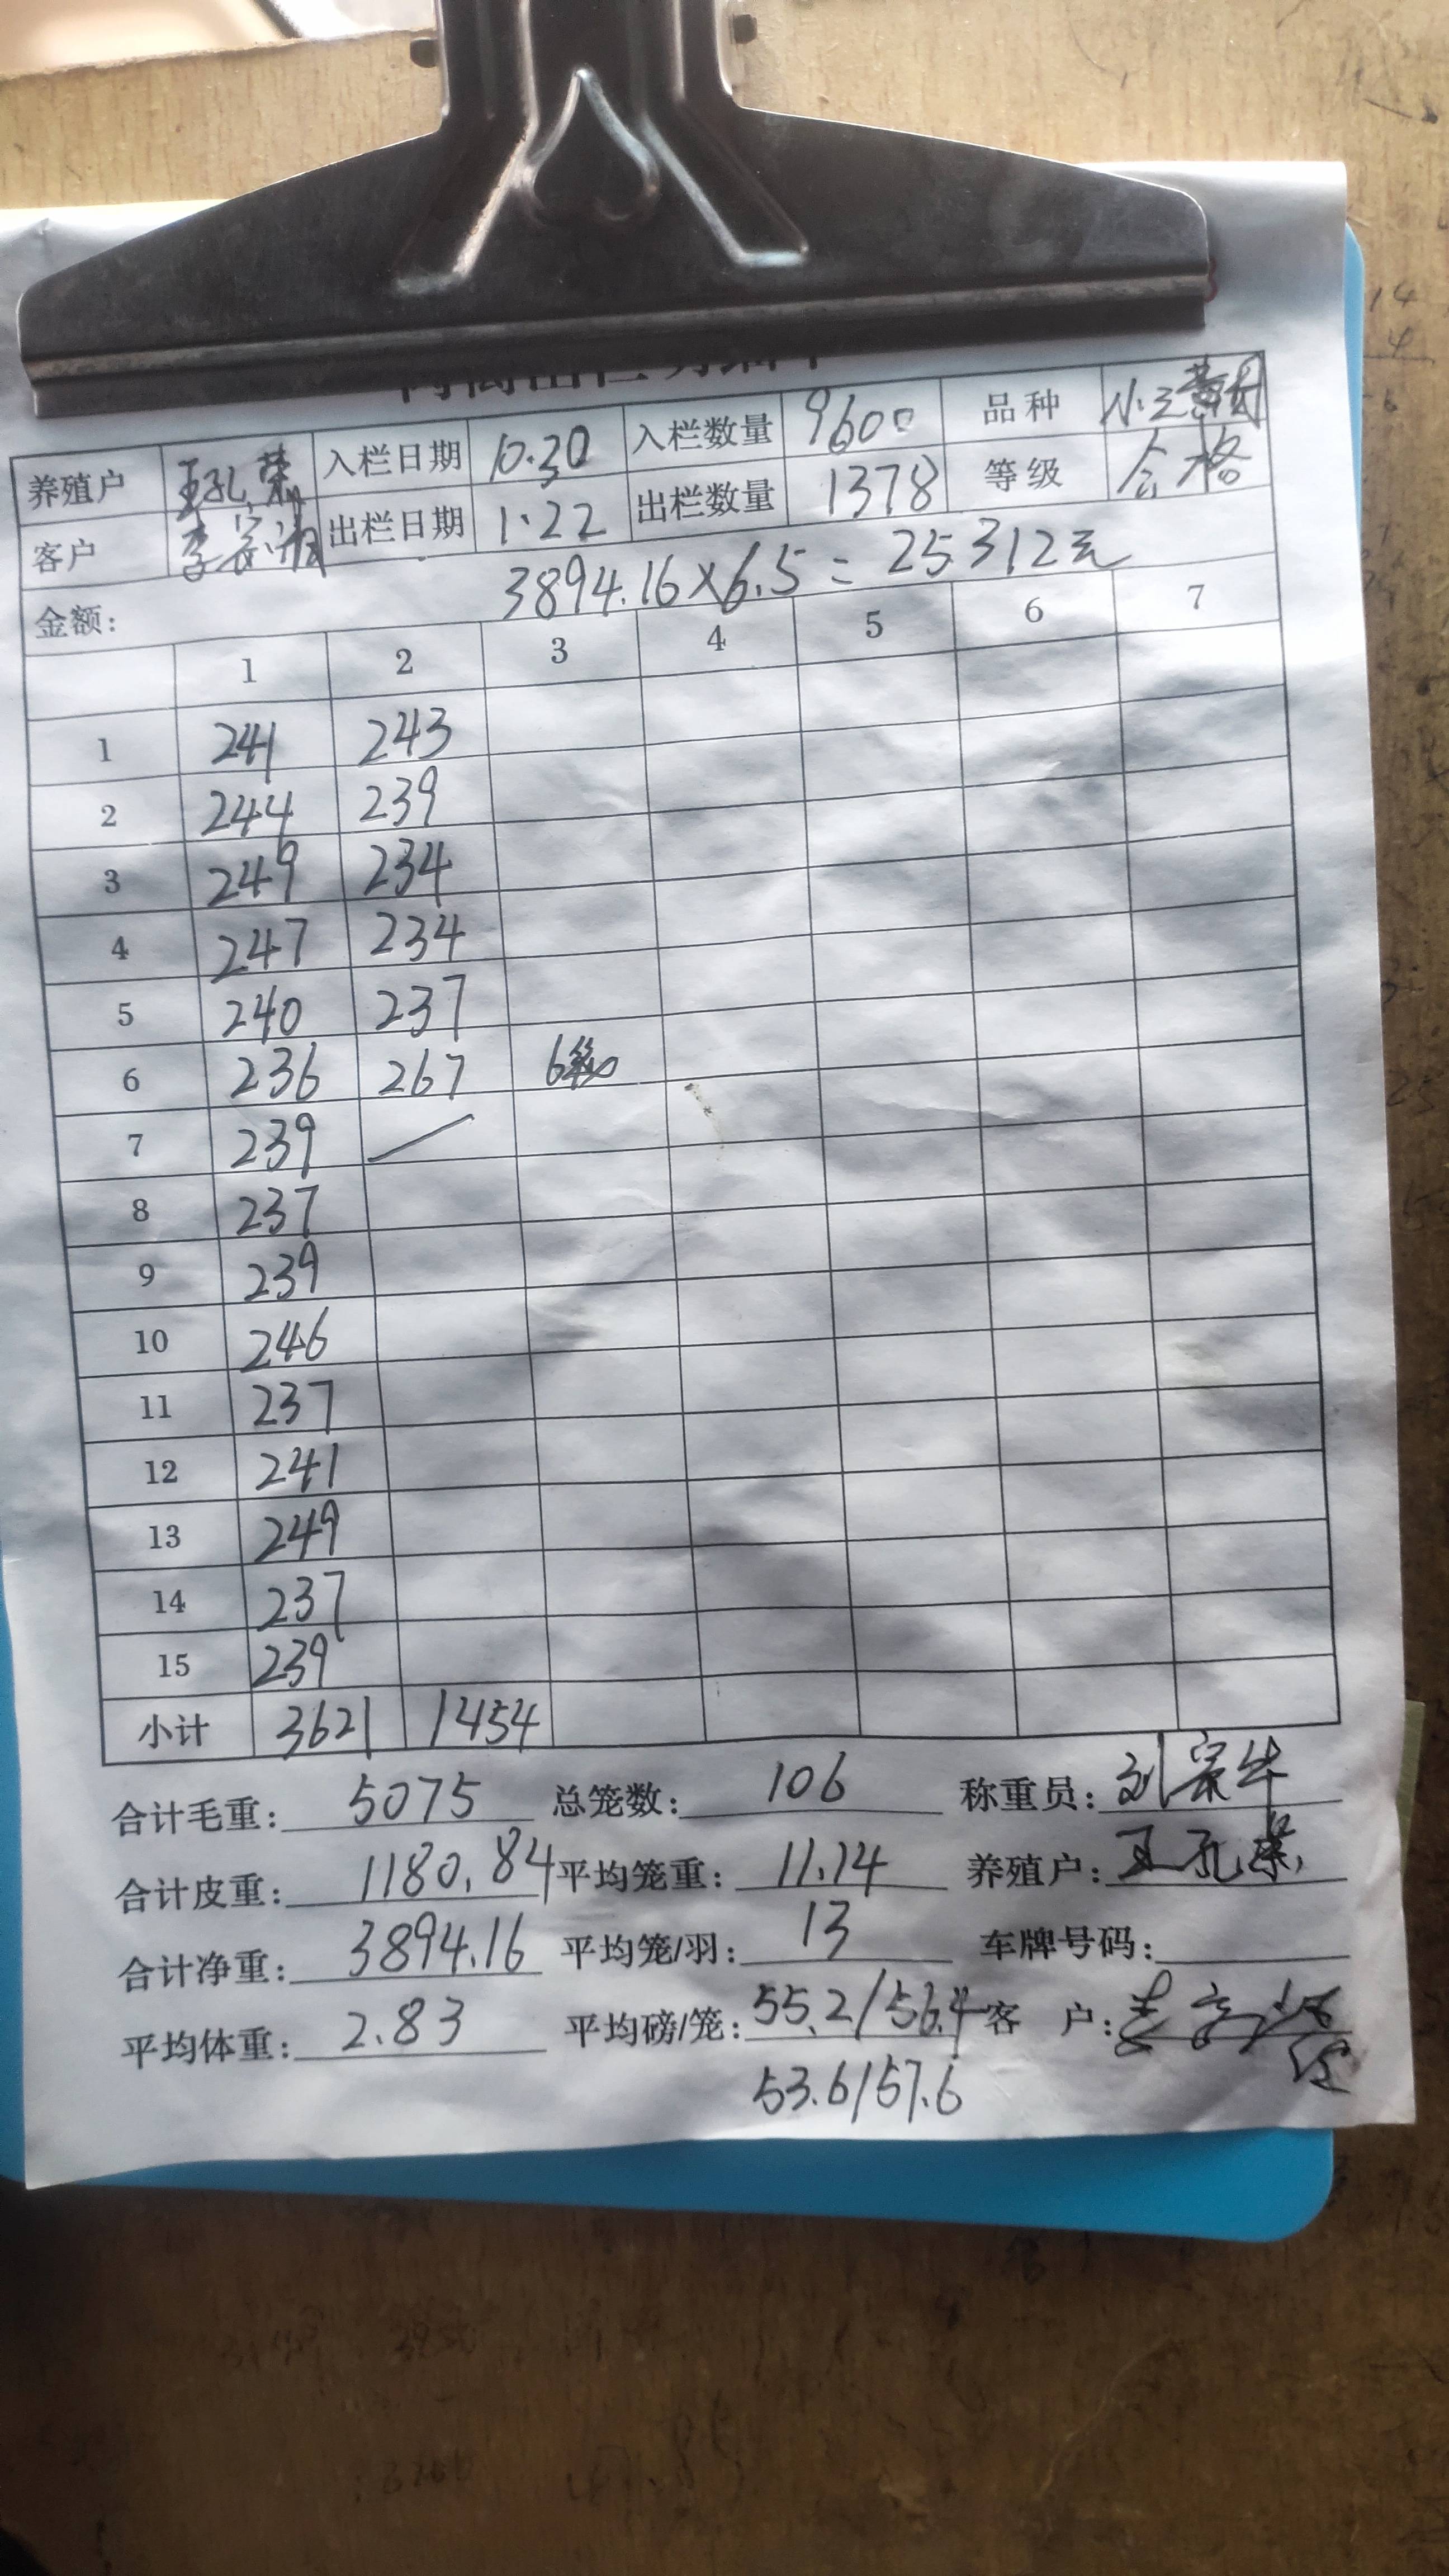 养殖户 王孔荣 入栏日期 10.30 入栏数量 9600 品种 小三黄
客户 李宗 出栏日期 1.22 出栏数量 1378 等级 合格
金额: 3894.16×6.5=25312元
1 2 3 4 5 6 7
1 241 243
2 244 239
3 249 234
4 247 234
5 240 237
6 236 267 6笼
7 239
8 237
9 239
10 246
11 237
12 241
13 249
14 237
15 239
小计 3621 1454
合计毛重: 5075 总笼数: 106 称重员: 刘宗华
合计皮重: 1180.84 平均笼重: 11.14 养殖户: 王孔荣
合计净重: 3894.16 平均笼/羽: 13 车牌号码:
平均体重: 2.83 平均磅/笼: 55.2/56.4 客 户:
53.6/57.6